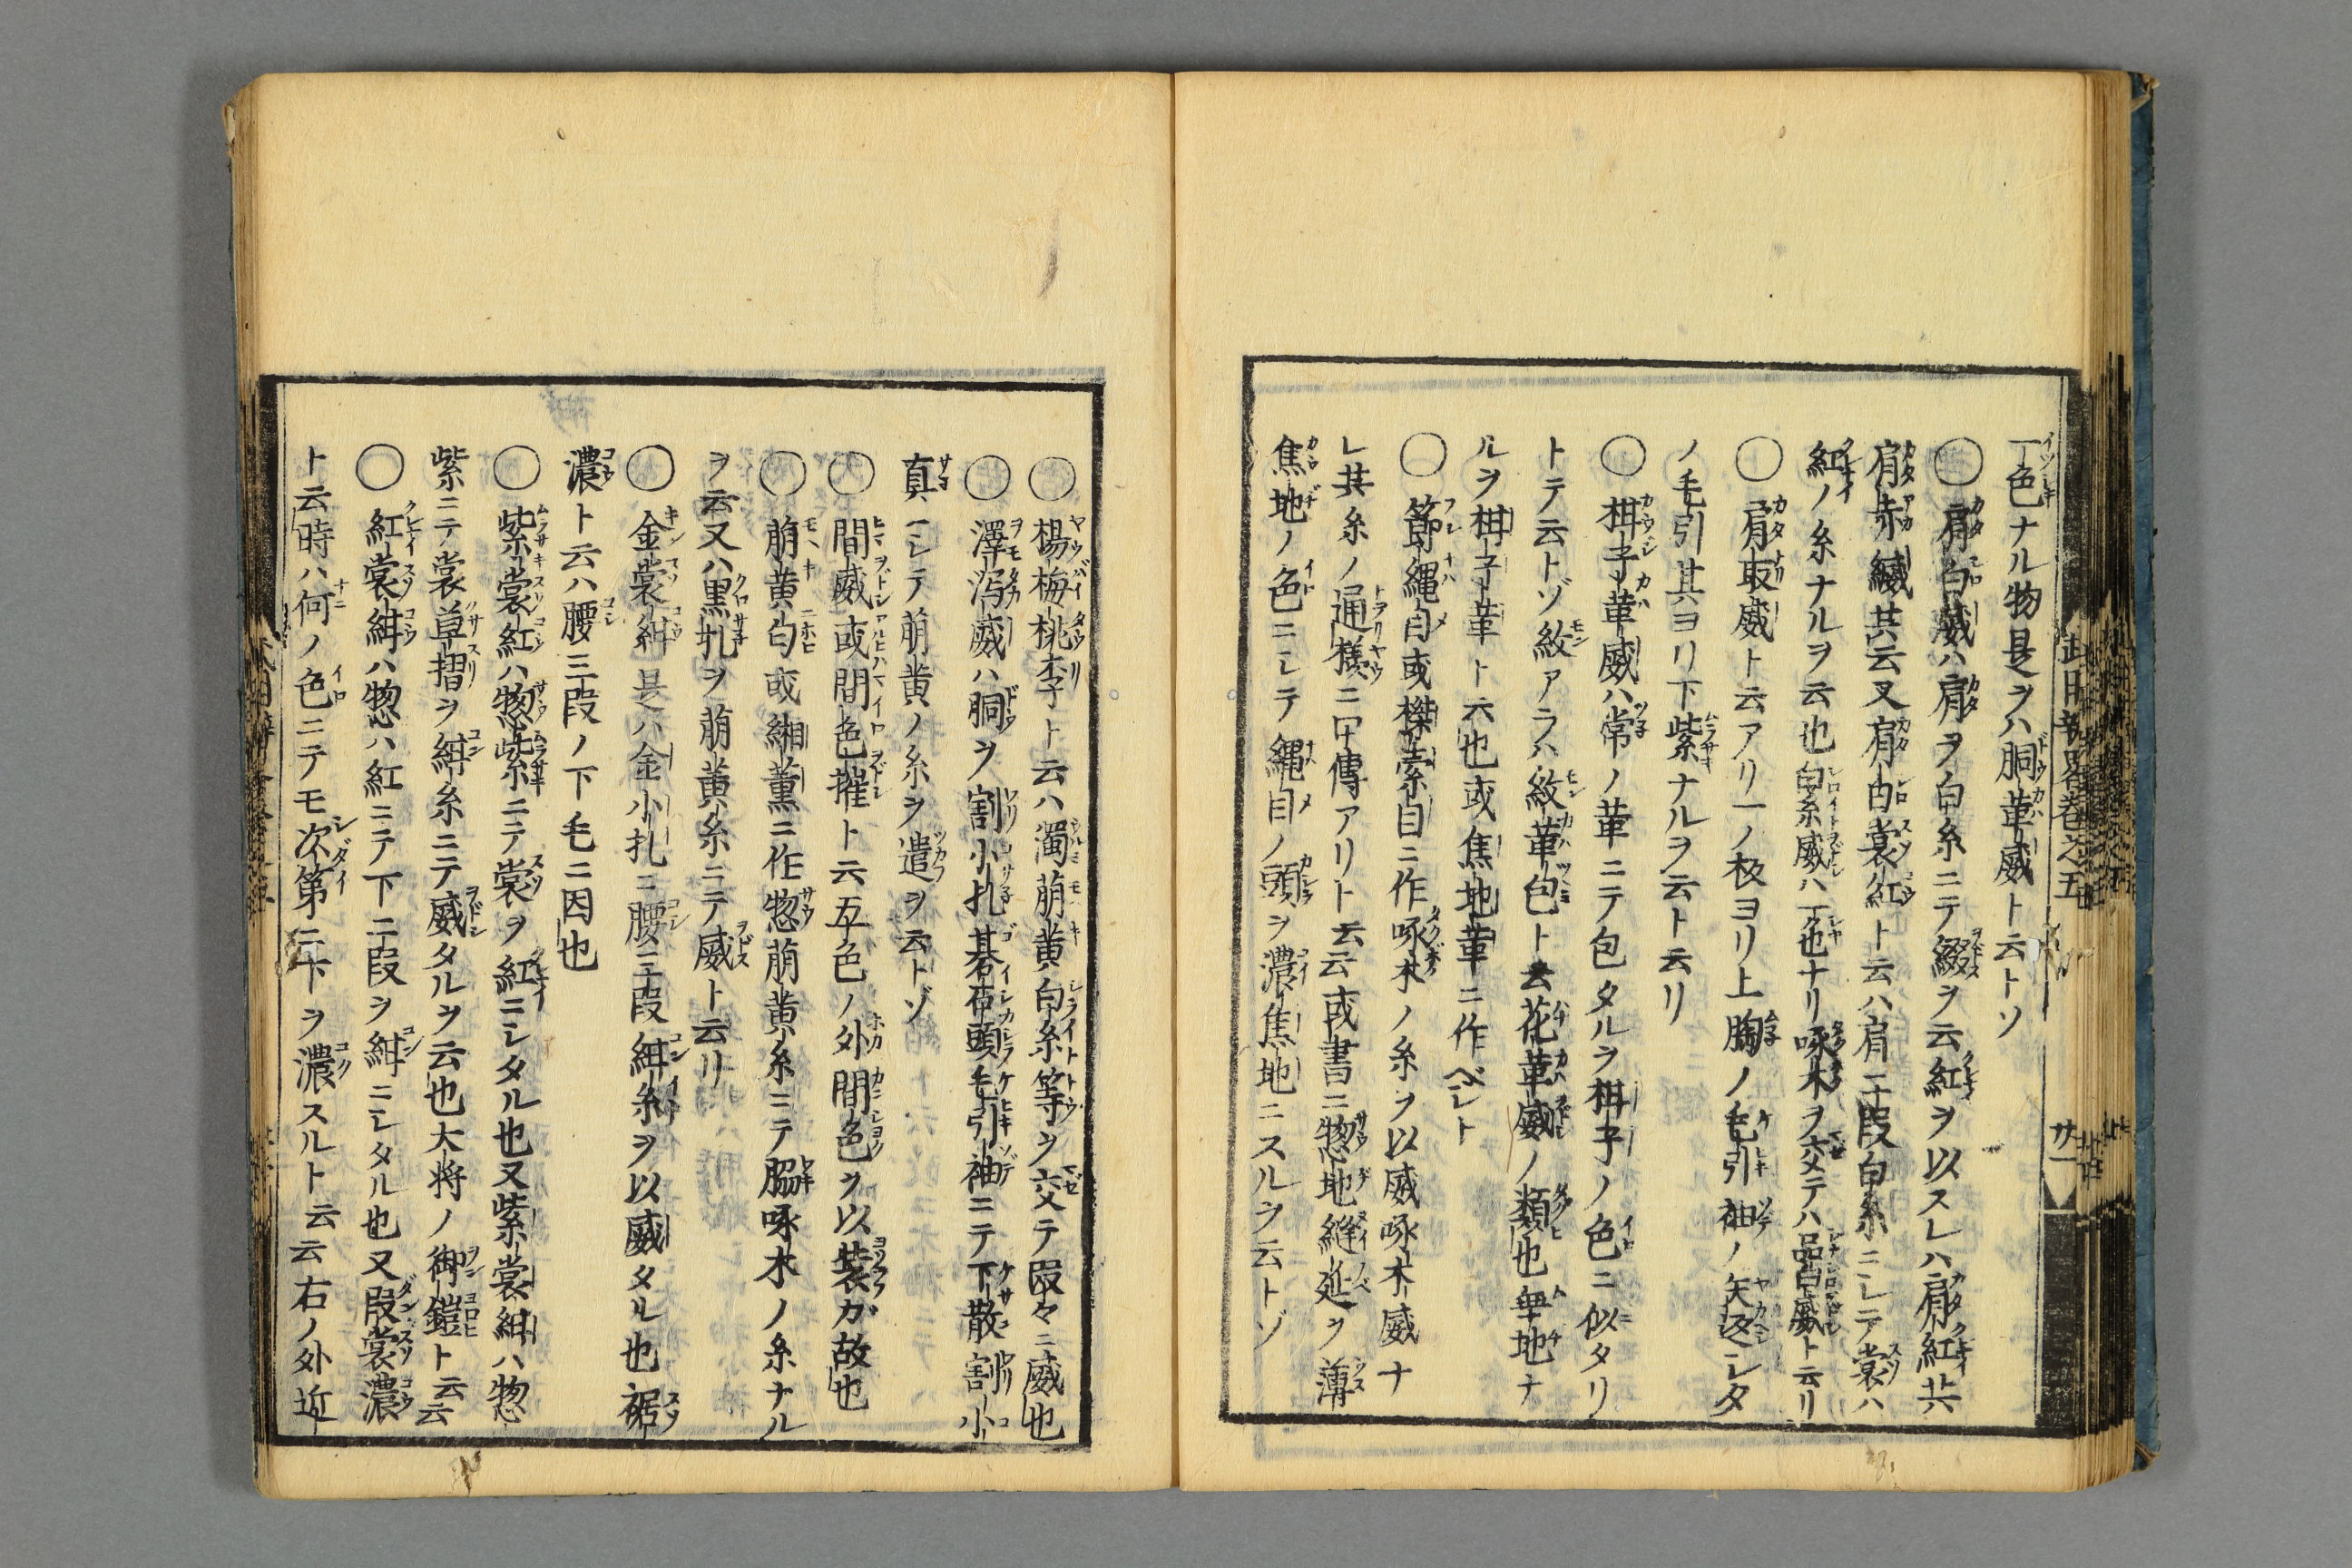 一色ナル物是ヲハ胴革威ト云トソ
〇肩白威ハ肩ヲ白糸ニテ綴ヲ云紅ヲ以スレハ肩紅共
肩赤縅共云又肩白裳紅ト云ハ肩二段白糸ニシテ裳ハ
紅ノ糸ナルヲ云也白糸威ハ一色也ナリ啄木ヲ交テハ品白威ト云リ
〇肩取威ト云アリ一ノ板ヨリ上胸ノ毛引袖ノ矢返シタ
ノ毛引其ヨリ下紫ナルヲ云ト云リ
〇柑子革威ハ常ノ革ニテ包タルヲ柑子ノ色ニ似タリ
トテ云トゾ紋アラハ紋革包ト云花革威ノ類也無地ナ
ルヲ柑子革ト云也或焦地革ニ作ベシト
〇節縄目或櫟索目ニ作啄木ノ糸ヲ以威啄木威ナ
レ其糸ノ通様ニ口傳アリト云云或書ニ惣地縫延ヲ薄
焦地ノ色ニシテ縄目ノ頭ヲ濃焦地ニスルヲ云トゾ
武用辨畧卷之五
廿一
〇楊梅桃李ト云ハ濁萠黄白糸等ヲ交テ段々ニ威也
〇澤瀉威ハ胴ヲ割小札碁石頭毛引袖ニテ下散割小
真一シテ萠黄ノ糸ヲ遣ヲ云トゾ
〇間威或間色摧ト云五色ノ外間色ヲ以装ガ故也
〇萠黄匂或緗薫ニ作惣萠黄糸ニテ脇啄木ノ糸ナル
ヲ云又ハ黒札ヲ萠黄糸ニテ威ト云リ
〇金裳紺是ハ金小札ニ腰三段紺糸ヲ以威タル也裾
濃ト云ハ腰三段ノ下毛ニ因也
〇紫裳紅ハ惣紫ニテ裳ヲ紅ニシタル也又紫裳紺ハ惣
紫ニテ裳草摺ヲ紺糸ニテ威タルヲ云也大将ノ御鎧ト云云
〇紅裳紺ハ惣ハ紅ニテ下二段ヲ紺ニシタル也又段裳濃
ト云時ハ何ノ色ニテモ次第ニ下ヲ濃スルト云云右ノ外近